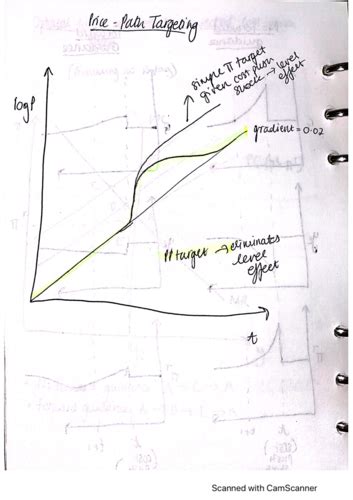 Price-Path Targeting
simple π target
given cost push
shock → level
effect
logP
gradient = 0.02
PP target → eliminates
level
effect
t
Scanned with CamScanner